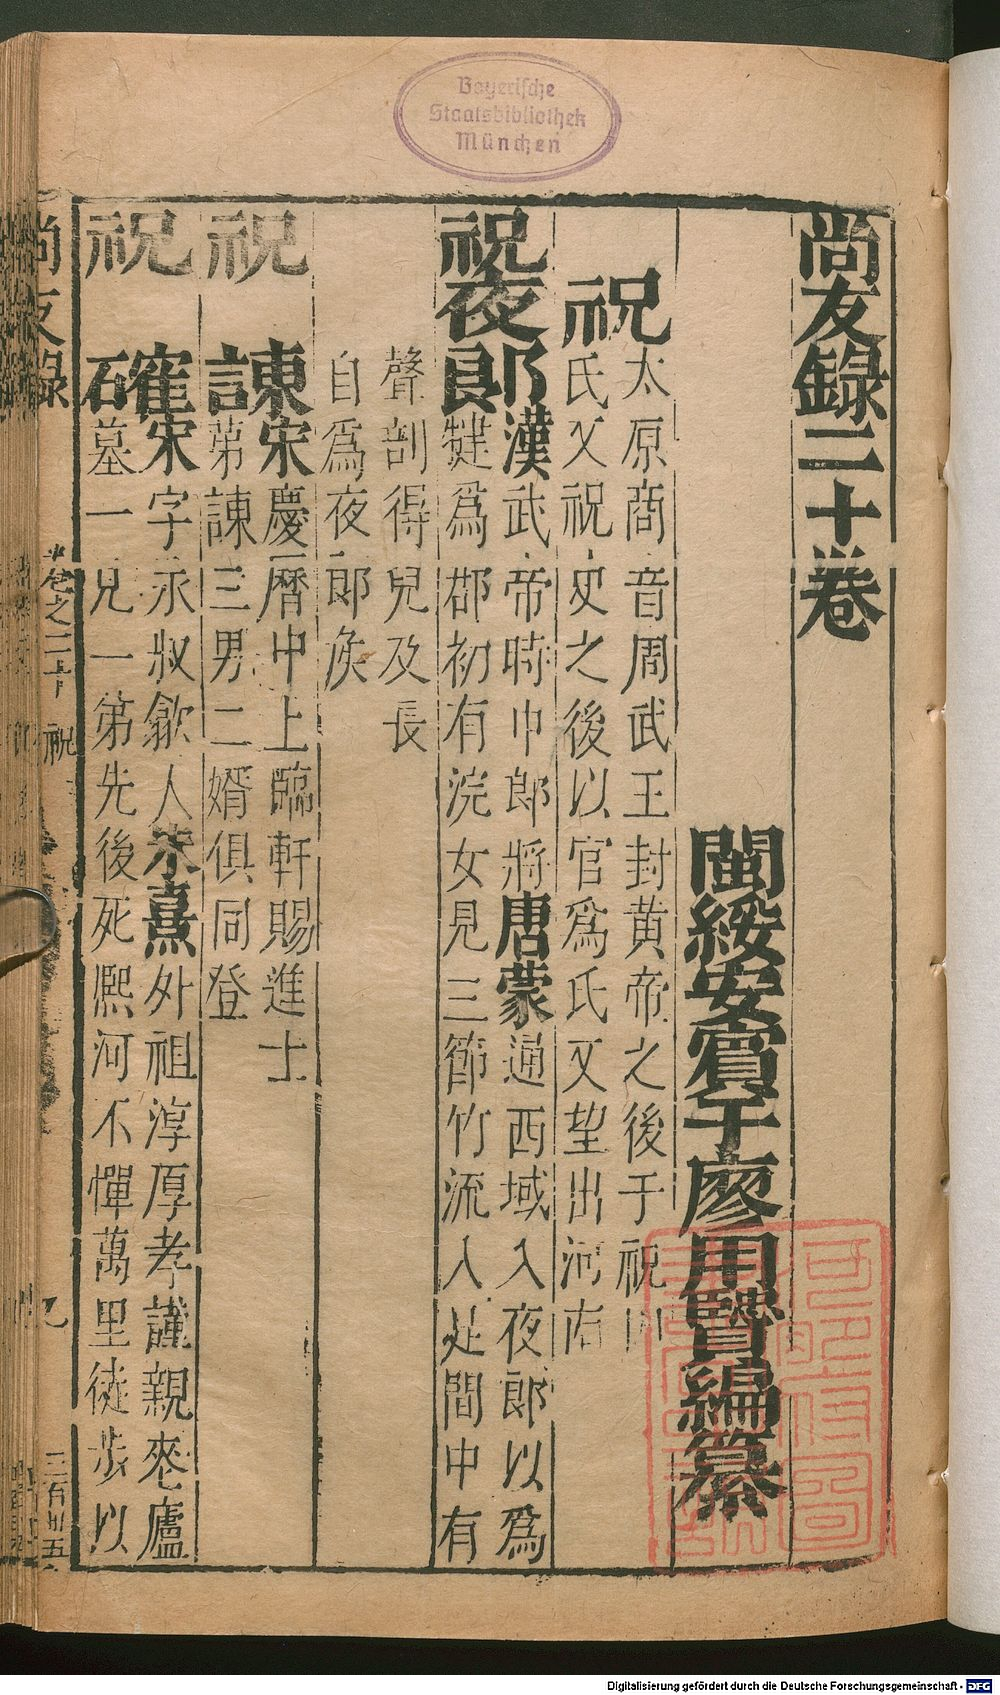 Bayerische
Staatsbibliothek
München
尚友錄二十卷
閩綏安賓于廖用賢編纂
祝
太原商音周武王封黃帝之後于祝
氏又祝史之後以官爲氏又望出河南
祝夜郎
漢武帝時中郎將唐蒙通西域入夜郎以爲
犍爲郡初有浣女見三節竹流入足間中有
聲剖得兒及長
自爲夜郎矦
祝諫
宋慶曆中上臨軒賜進士
第諫三男二婿俱同登
祝確
宋字永叔歙人朱熹外祖淳厚孝謹親喪廬
墓一兄一第先後死熈河不憚萬里徒步以
尚友錄
卷之二十
祝
二百卅五
Digitalisierung gefördert durch die Deutsche Forschungsgemeinschaft - DFG